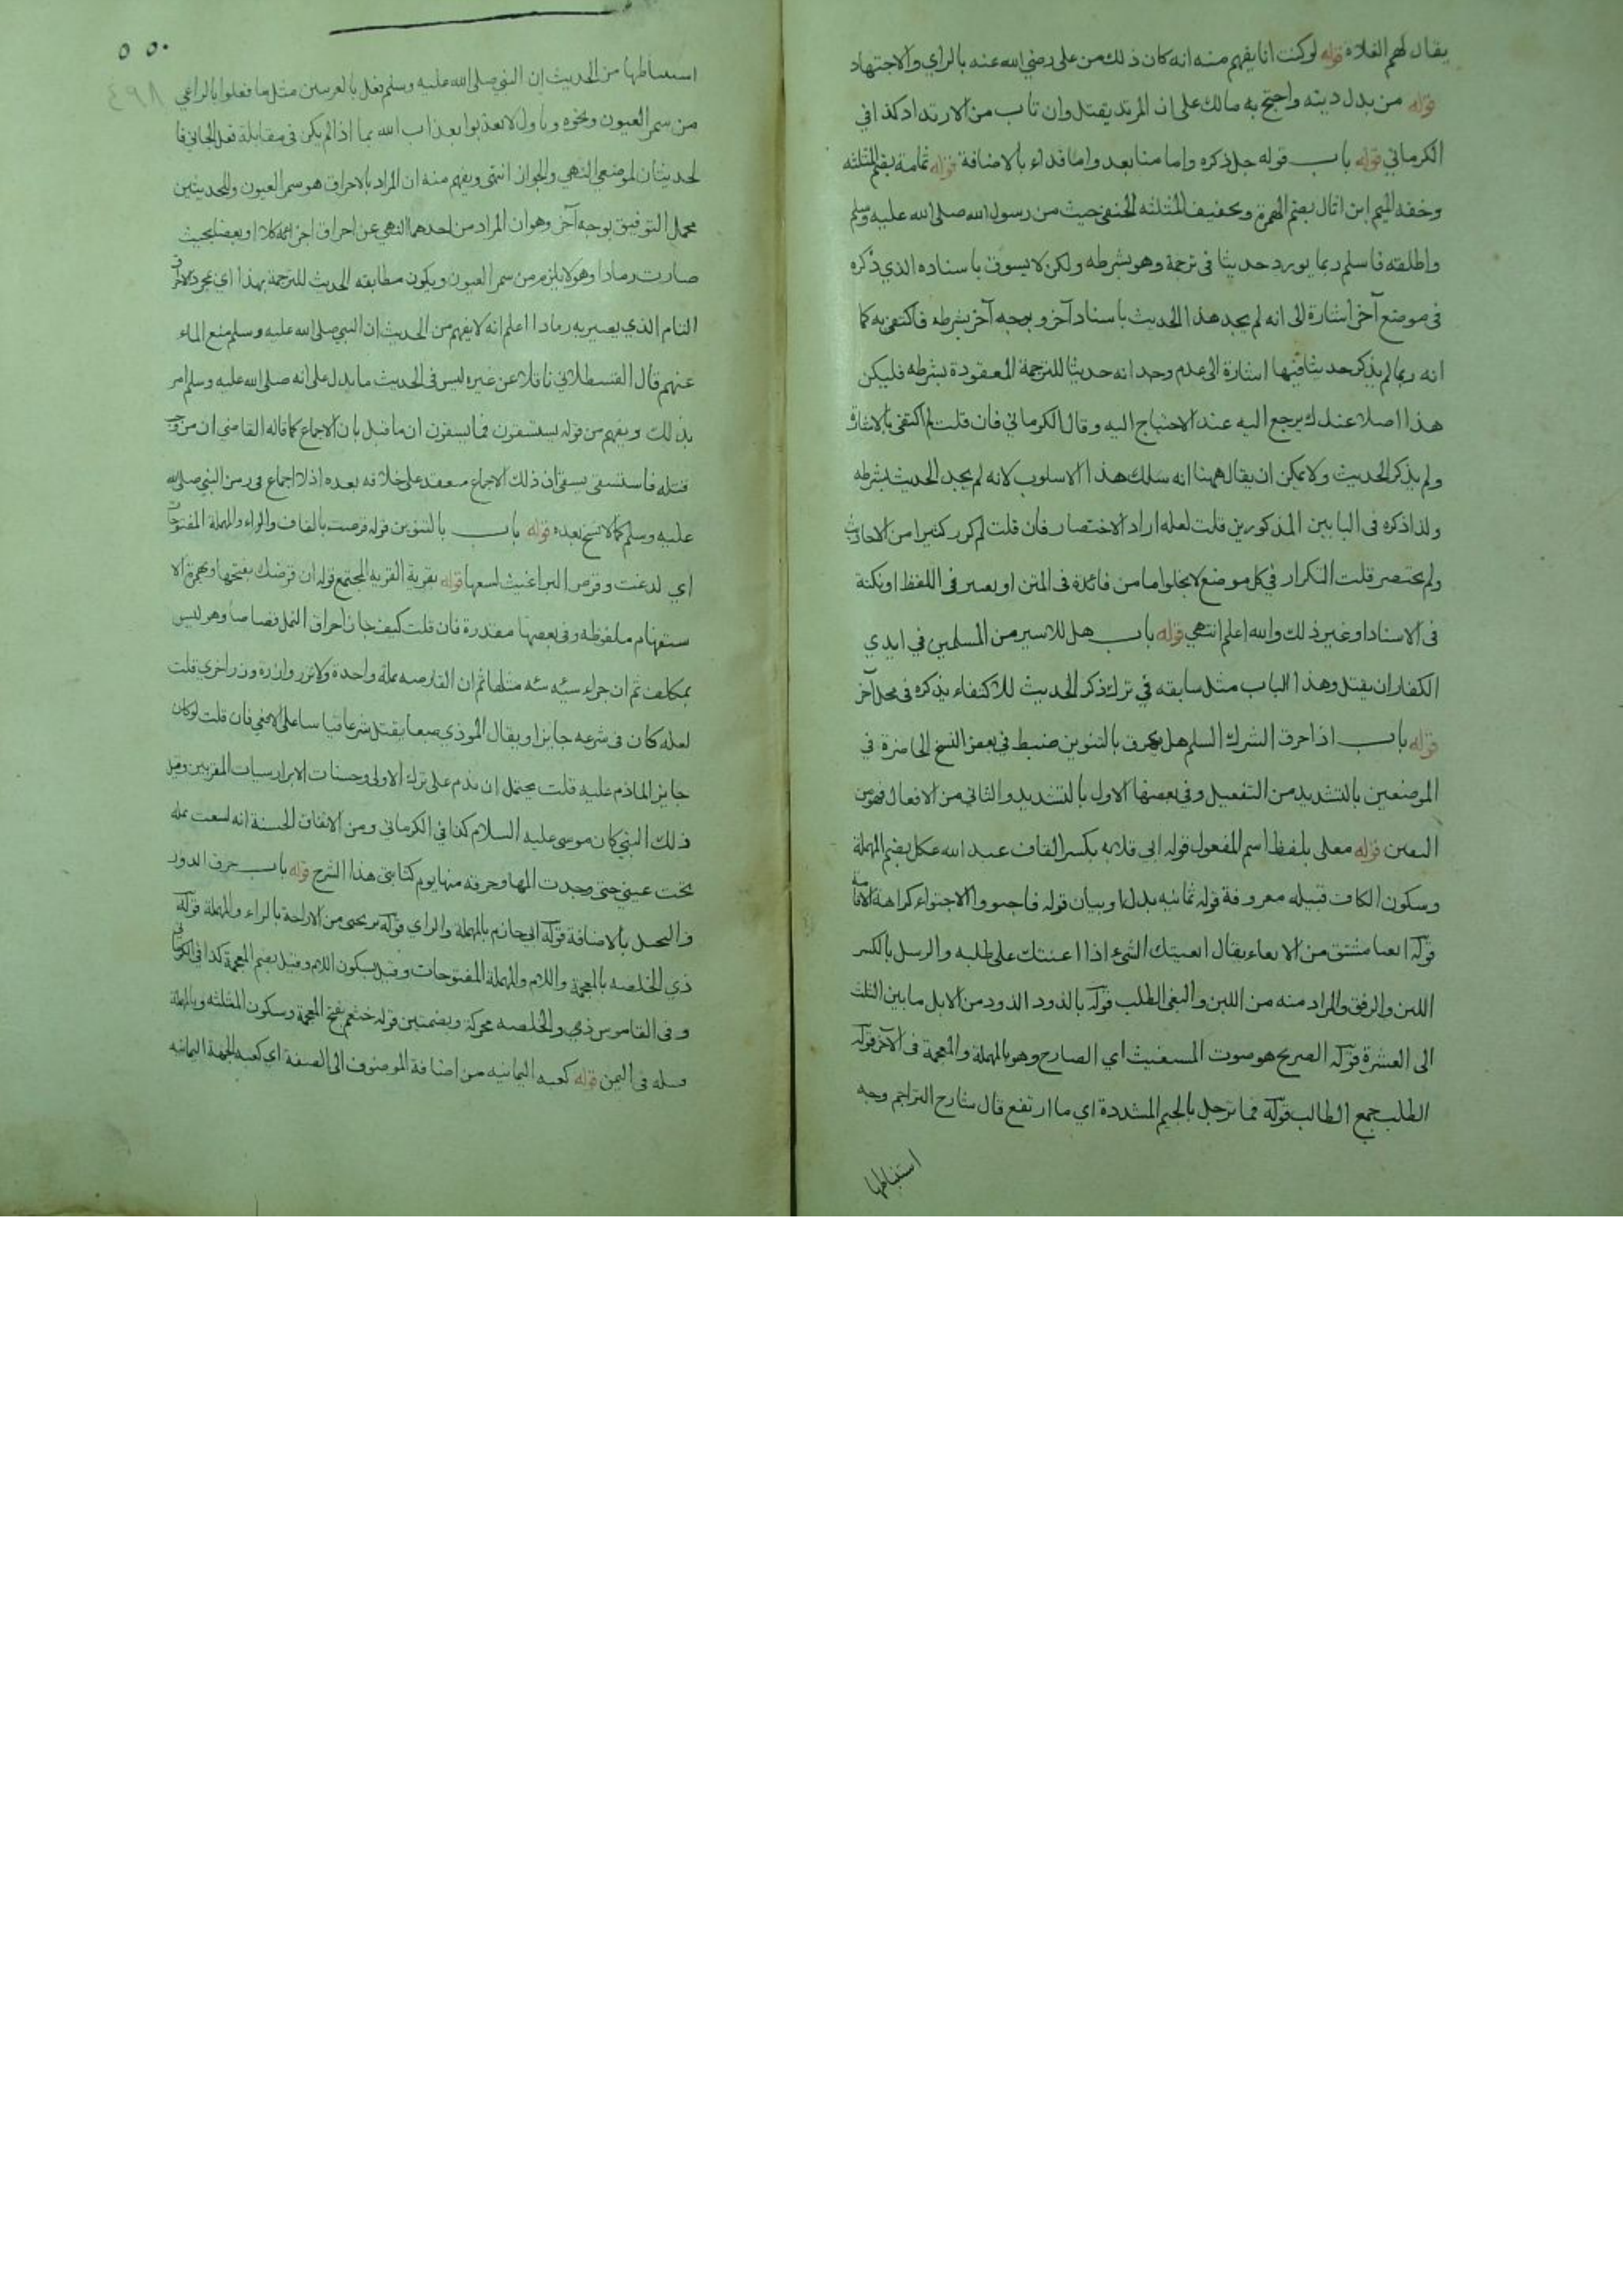 يقال لهم الغلاة قوله لو كنت انا يفهم منه انه كان ذلك من على رضي الله عنه بالراي والاجتهاد
قوله من بدل دينه واحتج به مالك على ان المرتد يقتل وان تاب من الارتداد كذا في
الكرماني قوله باب قوله جل ذكره واما منا بعد واما فداء بالاضافة قوله ثمامة بضم المثلثه
وخفه الميم ابن اثال بضم الهمزة وتخفيف المثلثه الحنفي حيث من رسول الله صلى الله عليه وسلم
واطلقه فاسلم ربما يورد حديثا فى ترجمة وهو بشرطه ولكن لا يسوق باسناده الذي ذكره
فى موضع آخر اشارة الى انه لم يجد هذا الحديث باسناد آخر وبوجه آخر بشرطه فاكتفى به كما
انه ربما لم يذكر حديثا فيها اشارة الى عدم وجدانه حديثا للترجمة المعقودة بشرطه فليكن
هذا اصلا عندك يرجع اليه عند الاحتياج اليه وقال الكرماني فان قلت لم اكتفى بالاشارة
ولم يذكر الحديث ولا يمكن ان يقال ههنا انه سلك هذا الاسلوب لانه لم يجد الحديث بشرطه
ولذا ذكره فى البابين المذكورين قلت لعله اراد الاختصار فان قلت لم كرر كثيرا من الاحاديث
ولم يختصر قلت التكرار في كل موضع لا يخلوا ما من فائدة فى المتن او بعير فى اللفظ او نكتة
فى الاسناد او غير ذلك والله اعلم انتهى قوله باب هل للاسير من المسلمين في ايدي
الكفار ان يقتل وهذا الباب مثل سابقه في ترك ذكر الحديث للاكتفاء بذكره فى محل آخر
قوله باب اذا حرق المشرك المسلم هل يحرق بالتنوين ضبط في بعض النسخ الحاضرة في
الموضعين بالتشديد من التفعيل وفي بعضها الاول بالتشديد والثاني من الافعال فهو من
التفنن قوله معلى بلفظ اسم المفعول قوله ابي قلابه بكسر القاف عبد الله عكل بضم المهملة
وسكون الكاف قبيله معروفة قوله ثمانيه بدل او بيان قوله فاجتووا الاجتواء كراهة الاقامة
قوله ابغنا مشتق من الابغاء يقال ابغيتك الشئ اذا اعنتك على طلبه والرسل بالكسر
اللبن والرفق والمراد منه من اللبن والبغى الطلب قوله بالذود الذود من الابل ما بين الثلث
الى العشرة قوله الصريخ هو صوت المستغيث اي الصارخ وهو بالمهملة والمعجمة فى الآخر قوله
الطلب جمع الطالب قوله فما ترجل بالجيم المشددة اي ما ارتفع قال شارح التراجم وجه
استنباطها
٥٥٠
٨٩٤
استنباطها من الحديث ان النبي صلى الله عليه وسلم فعل بالعرنيين مثل ما فعلوا بالراعي
من سمر العيون ونحوه وتأول لا تعذبوا بعذاب الله بما اذا لم يكن فى مقابلة فعل الجاني فا
لحديثان لموضعي النهي والجواز انتهى ويفهم منه ان المراد بالاحراق هو سمر العيون وللحديثين
محمل التوفيق بوجه آخر وهو ان المراد من احدهما النهي عن احراق اجزائه كلا او بعضا بحيث
صارت رمادا وهو لا يلزم من سمر العيون ويكون مطابقه الحديث للترجمة بهذا اي مجرد الاحراق
التام الذي يصير به رمادا اعلم انه لا يفهم من الحديث ان النبي صلى الله عليه وسلم منع الماء
عنهم قال القسطلاني ناقلا عن غيره ليس فى الحديث ما يدل على انه صلى الله عليه وسلم امر
بذلك ويفهم من قوله يستسقون فما يسقون ان ما قيل بان الاجماع كما قاله القاضي ان من وجب
قتله فاستسقى يسقى ان ذلك الاجماع منعقد على خلافه بعده اذ لا اجماع فى زمن النبي صلى الله
عليه وسلم كما لا نسخ بعده قوله باب بالتنوين قوله قرصت بالقاف والراء والمهملة المفتوحات
اي لدغت وقرص البراغيث لسعها قوله بقرية القرية المجتمع قوله ان قرصتك بفتحها وبهمزة الا
ستفهام ملفوظه وفى بعضها مقدرة فان قلت كيف جاز احراق النمل قصاصا وهو ليس
بمكلف ثم ان جزاء سيئه سيئه مثلها ثم ان القارصه نملة واحدة ولا تزر وازرة وزر اخرى قلت
لعله كان فى شرعه جائزا ويقال الموذي طبعا يقتل شرعا قياسا على الافعى فان قلت لو كان
جايز الما ذم عليه قلت يحتمل ان يذم على ترك الاولى وحسنات الابرار سيات المقربين وقيل
ذلك النبي كان موسى عليه السلام كذا في الكرماني ومن الاتفاق الحسنة انه لسعت نملة
تحت عيني حتى وجدت المها وحرقه منها يوم كتابتى هذا الشرح قوله باب حرق الدور
والنخيل بالاضافة قوله ابي حازم بالمهملة والزاي قوله تريحنى من الاراحة بالراء والمهملة قوله
ذي الخلصه بالمعجمة واللام والمهملة المفتوحات وقيل بسكون اللام وقيل بضم المعجمة كذا فى الكرماني
وفى القاموس ذي والخلصه محركة وبضمتين قوله خثعم بفتح المعجمة وسكون المثلثه وبالمهملة
قبيله فى اليمن قوله كعبه اليمانيه من اضافة الموصوف الى الصفة اي كعبه الجهة اليمانيه